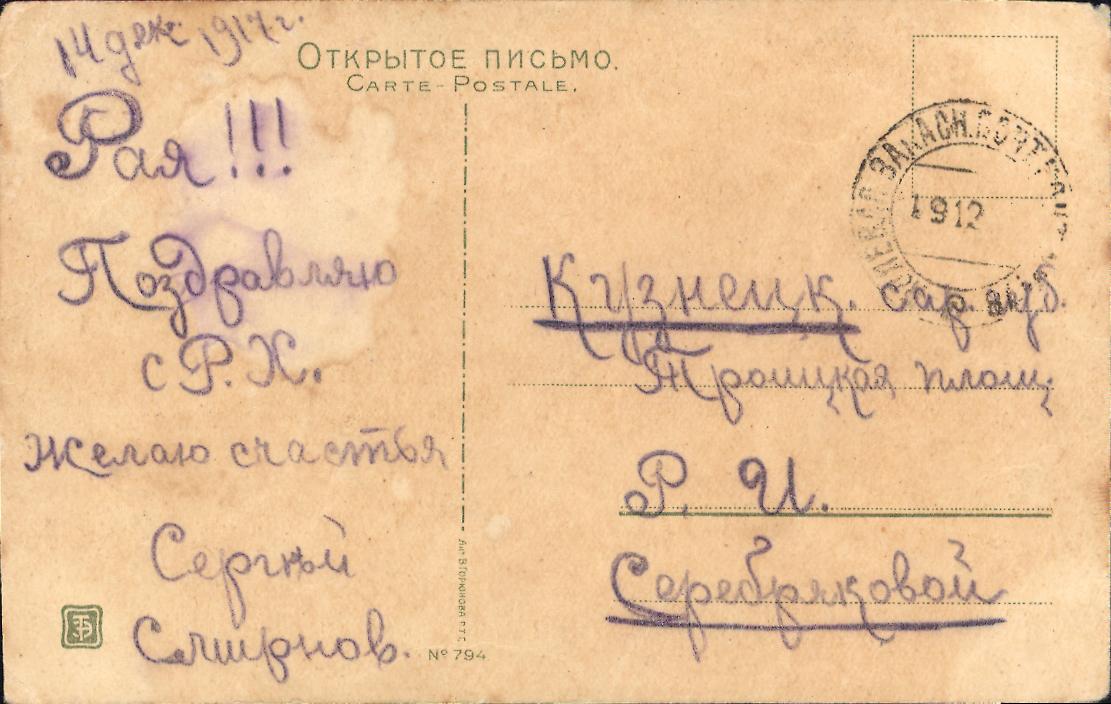 14 дек. 1917 г.
ОТКРЫТОЕ ПИСЬМО.
CARTE-POSTALE.
Рая!!!
Поздравляю
с Р. Х.
Желаю счастья
Сергѣй
Смирнов.
ЗАКАСП. ПОЧТ
1912
Кузнецк. Сар. губ.
Троицкая площ.
Р. И.
Серебряковой
№ 794